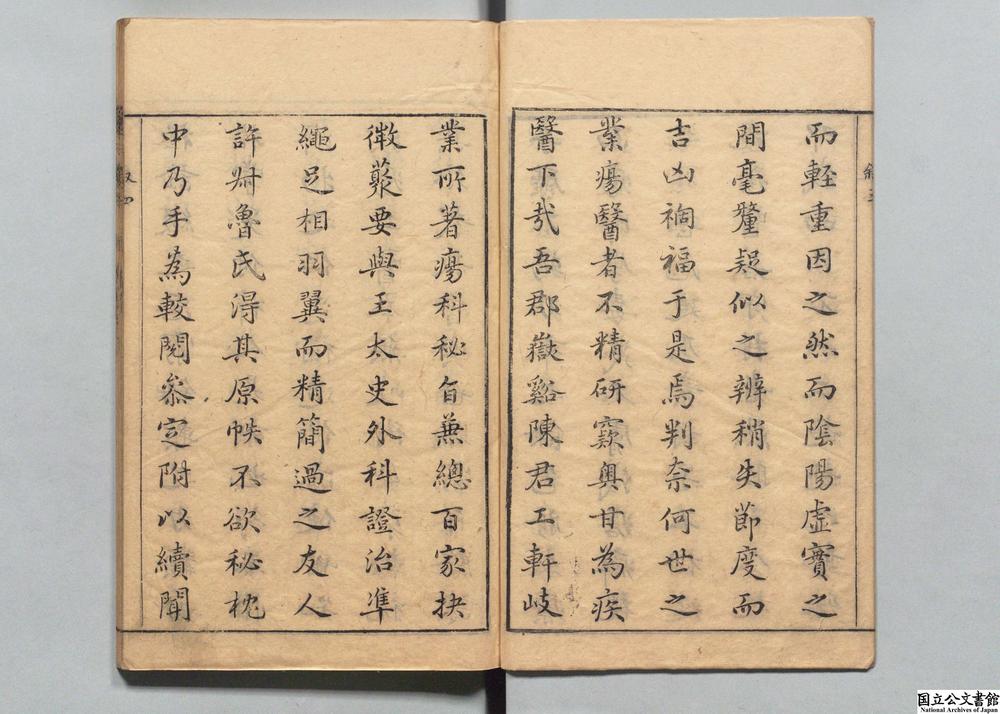 而輕重因之然而陰陽虛實之
間毫釐疑似之辨稍失節度而
吉凶禍福于是焉判柰何世之
業瘍醫者不精研窾奥甘為疾
醫下㢤吾郡嶽谿陳君工軒岐
業所著瘍科秘旨兼總百家抉
徵聚要與王太史外科證治準
繩足相羽翼而精簡過之友人
許斚魯氏淂其原帙不欲秘枕
中乃手為較閱叅定附以續聞
叙四
国立公文書館
National Archives of Japan